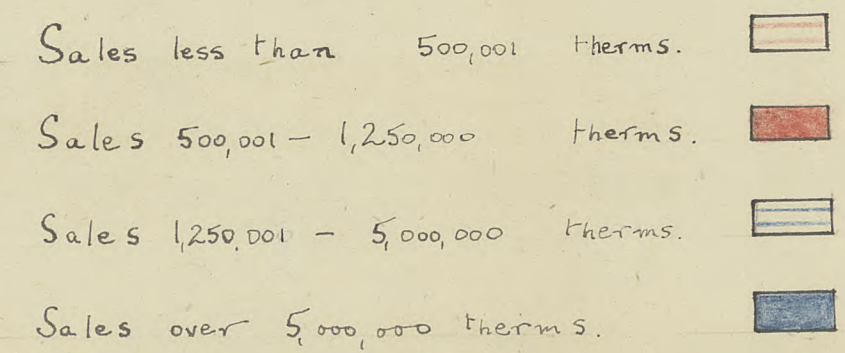 Sales less than 500,001 therms.
Sales 500,001 — 1,250,000 therms.
Sales 1,250,001 — 5,000,000 therms.
Sales over 5,000,000 therms.